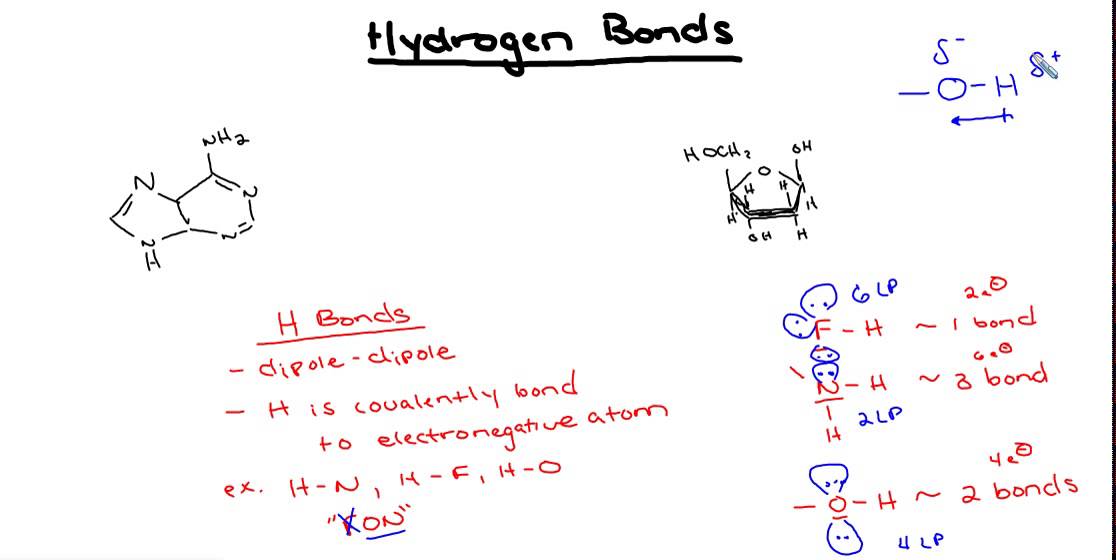 Hydrogen Bonds
δ⁻
—O—H δ⁺
NH₂
N
N
N
N
H
HOCH₂
OH
O
H
H
H
H
OH
H
H Bonds
- dipole-dipole
- H is covalently bond
to electronegative atom
ex. H-N, H-F, H-O
"FON"
6 LP
2e⊖
F-H ~ 1 bond
6e⊖
N-H ~ 3 bond
H
2LP
4e⊖
-O-H ~ 2 bonds
4 LP